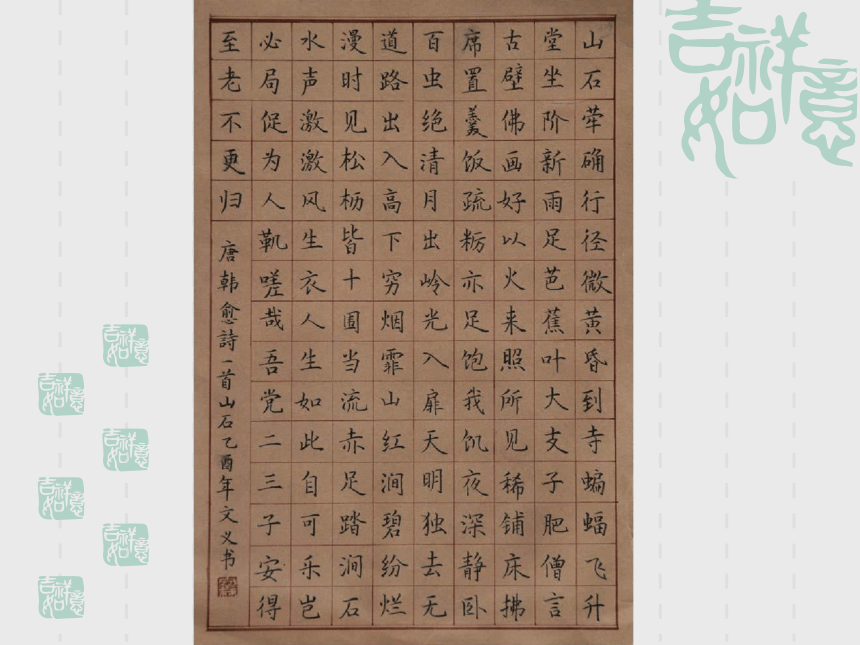 山石荦确行径微黄昏到寺蝙蝠飞升
堂坐阶新雨足芭蕉叶大支子肥僧言
古壁佛画好以火来照所见稀铺床拂
席置羹饭疏粝亦足饱我饥夜深静卧
百虫绝清月出岭光入扉天明独去无
道路出入高下穷烟霏山红涧碧纷烂
漫时见松枥皆十围当流赤足踏涧石
水声激激风生衣人生如此自可乐岂
必局促为人嗟哉吾党二三子安得
至老不更归 唐韩愈詩一首山石乙酉年文义书
吉祥如意
吉祥如意
吉祥如意
吉祥如意
吉祥如意
吉祥如意
吉祥如意